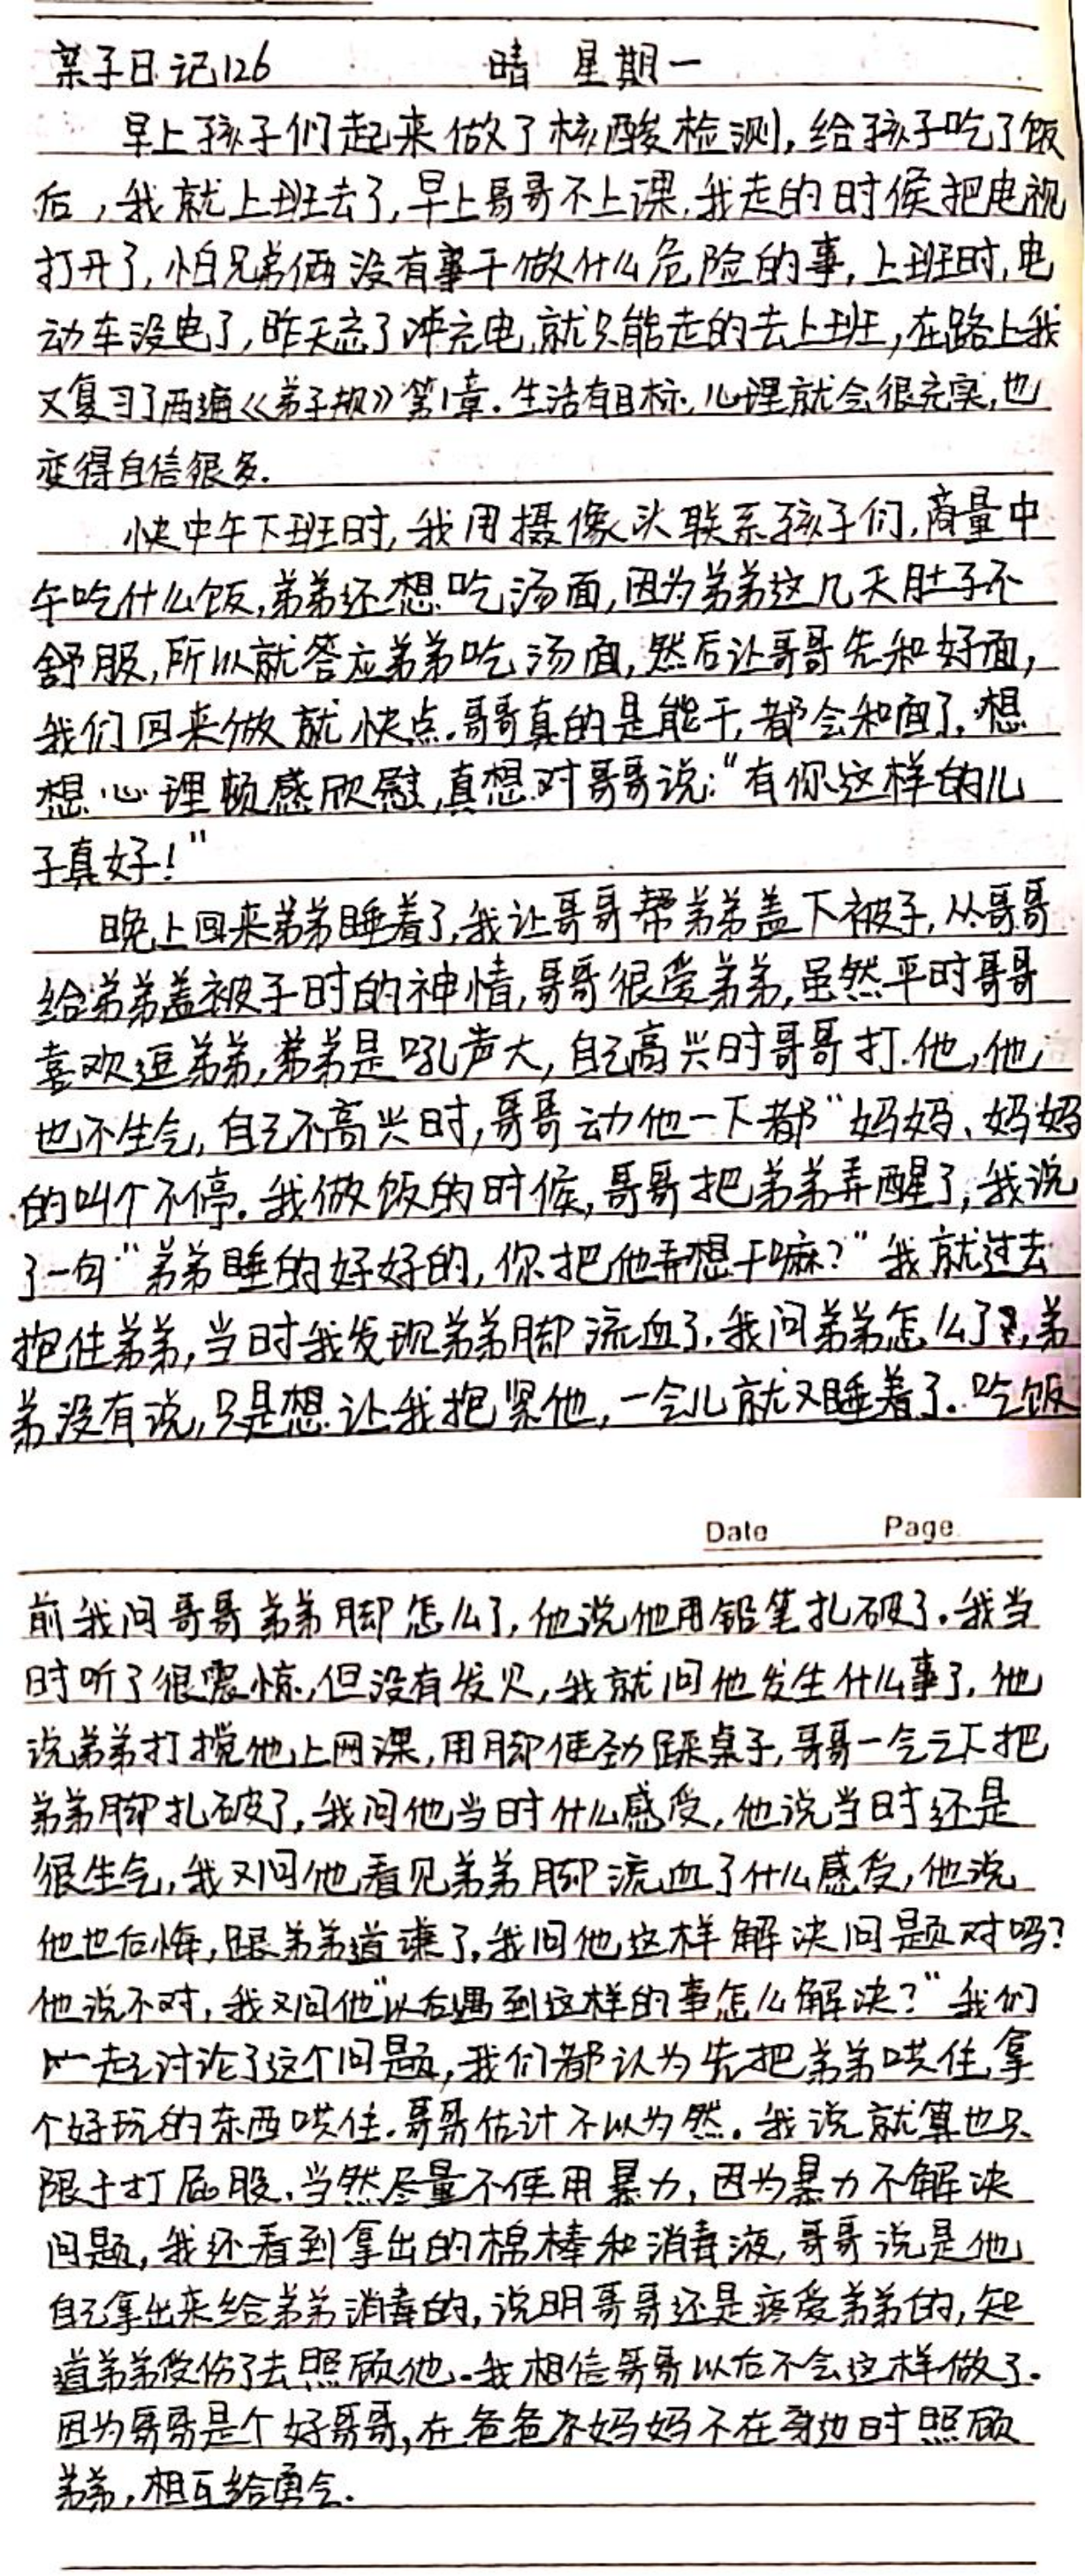 亲子日记126 晴 星期一
早上孩子们起来做了核酸检测，给孩子吃了饭
后，我就上班去了，早上哥哥不上课，我走的时候把电视
打开了，怕兄弟俩没有事干做什么危险的事，上班时，电
动车没电了，昨天忘了冲充电，就只能走的去上班，在路上我
又复习了两遍《弟子规》第1章．生活有目标，心理就会很充实，也
变得自信很多．
快中午下班时，我用摄像头联系孩子们，商量中
午吃什么饭，弟弟还想吃汤面，因为弟弟这几天肚子不
舒服，所以就答应弟弟吃汤面，然后让哥哥先和好面，
我们回来做就快点．哥哥真的是能干，都会和面了，想
想心理顿感欣慰，真想对哥哥说："有你这样的儿
子真好！"
晚上回来弟弟睡着了，我让哥哥帮弟弟盖下被子，从哥哥
给弟弟盖被子时的神情，哥哥很爱弟弟，虽然平时哥哥
喜欢逗弟弟，弟弟是吼声大，自己高兴时哥哥打他，他，
也不生气，自己不高兴时，哥哥动他一下都"妈妈、妈妈
的叫个不停。我做饭的时候，哥哥把弟弟弄醒了，我说
了一句"弟弟睡的好好的，你把他弄想干嘛？"我就过去
抱住弟弟，当时我发现弟弟脚流血了，我问弟弟怎么了，弟
弟没有说，只是想让我抱紧他，一会儿就又睡着了。吃饭
Date Page
前我问哥哥弟弟脚怎么了，他说他用铅笔扎破了。我当
时听了很震惊，但没有发火，我就问他发生什么事了，他
说弟弟打搅他上网课，用脚使劲踩桌子，哥哥一气之下把
弟弟脚扎破了，我问他当时什么感受，他说当时还是
很生气，我又问他看见弟弟脚流血了什么感受，他说
他也后悔，跟弟弟道谦了，我问他这样解决问题对吗？
他说不对，我又问他"以后遇到这样的事怎么解决？"我们
一起讨论了这个问题，我们都认为先把弟弟哄住，拿
个好玩的东西哄住．哥哥估计不以为然。我说就算也只
限于打屁股，当然尽量不使用暴力，因为暴力不解决
问题，我还看到拿出的棉棒和消毒液，哥哥说是他
自己拿出来给弟弟消毒的，说明哥哥还是疼爱弟弟的，知
道弟弟受伤了去照顾他。我相信哥哥以后不会这样做了．
因为哥哥是个好哥哥，在爸爸妈妈不在身边时照顾
弟弟，相互给勇气．